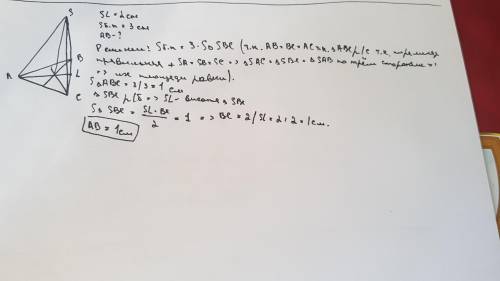 S
B
A
L
C
SL = 2 см
Sб.п = 3 см
AB - ?
Решение: Sб.п = 3·S△SBC (т.к. AB=BC=AC т.к. △ABC р/с т.к. пирамида
правильная + SA=SB=SC => △SAC=△SBC=△SAB по трём сторонам =>
=> их площади равны).
S△ABC = 3/3=1 см
△SBC р/б => SL - высота △SBC
S△SBC = SL·BC/2 = 1 => BC = 2/SL = 2:2=1см.
AB = 1см